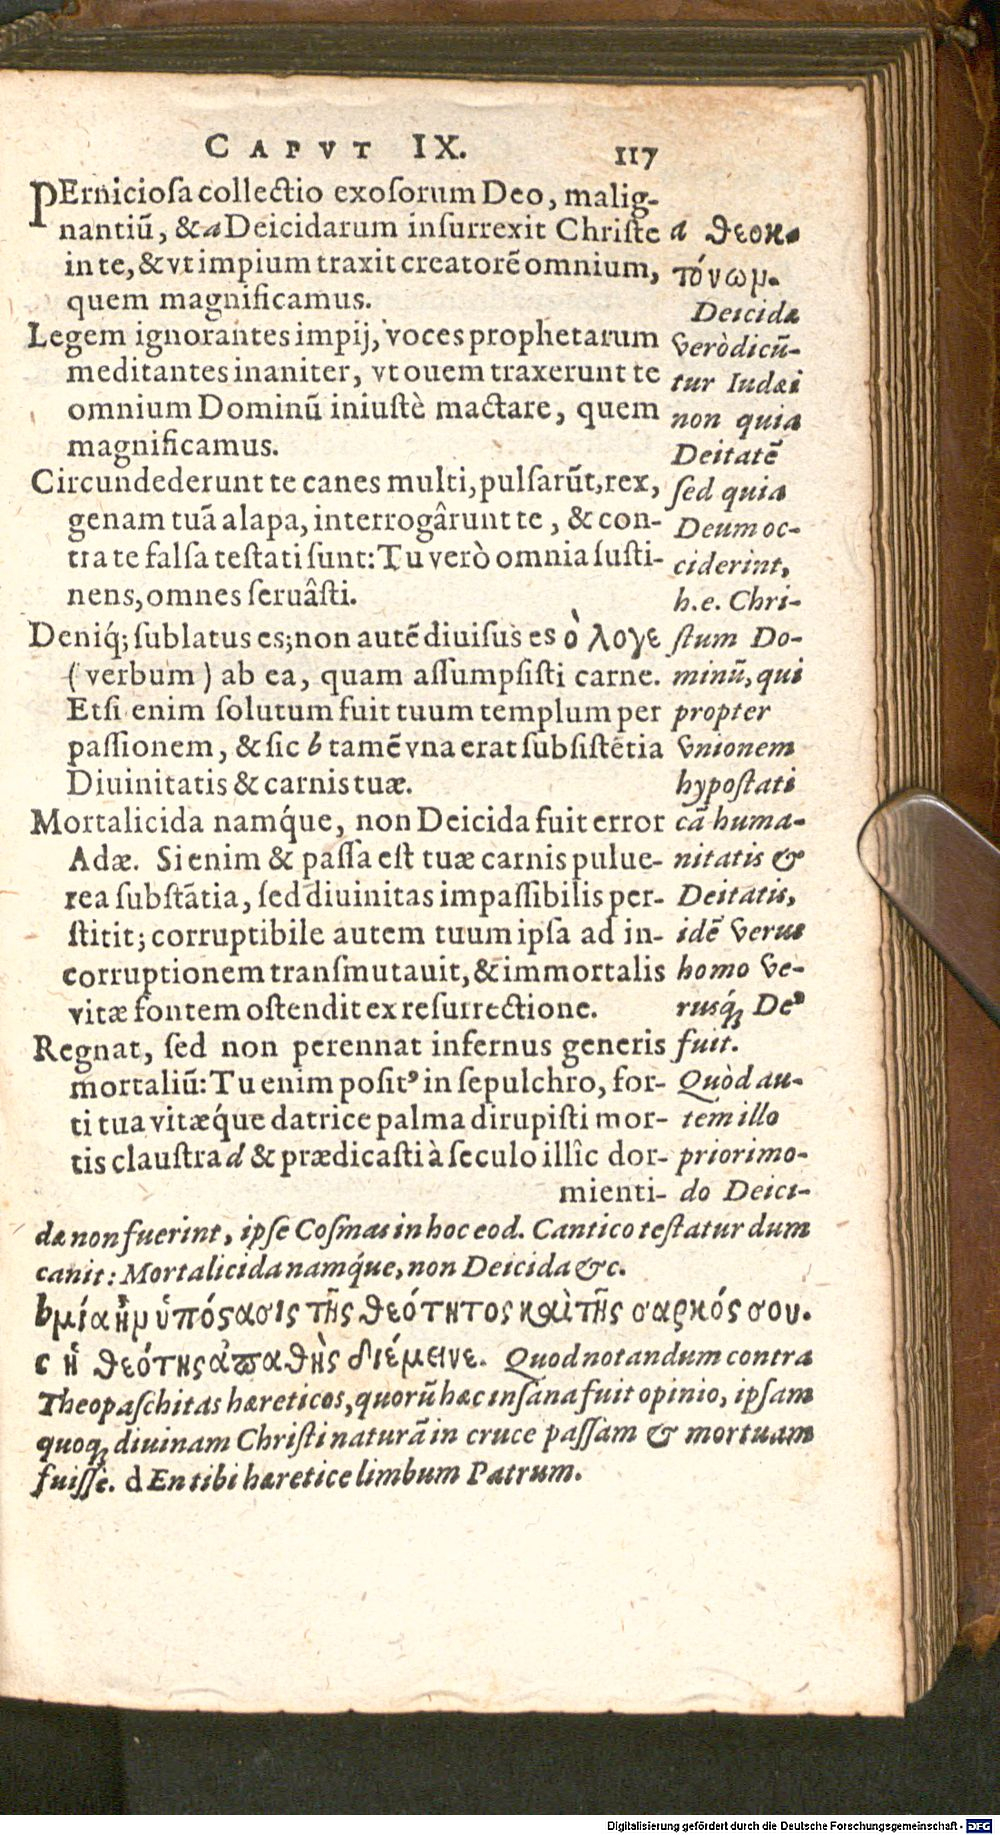 CAPVT IX. 117
PErniciosa collectio exosorum Deo, malig-
nantiū, & a Deicidarum insurrexit Christe
in te, & vt impium traxit creatorē omnium,
quem magnificamus.
Legem ignorantes impij, voces prophetarum
meditantes inaniter, vt ouem traxerunt te
omnium Dominū iniustè mactare, quem
magnificamus.
Circundederunt te canes multi, pulsarūt, rex,
genam tuā alapa, interrogârunt te, & con-
tra te falsa testati sunt: Tu verò omnia susti-
nens, omnes seruâsti.
Deniq́; sublatus es; non autē diuisus es ὁ λογε
(verbum) ab ea, quam assumpsisti carne.
Etsi enim solutum fuit tuum templum per
passionem, & sic b tamē vna erat subsistētia
Diuinitatis & carnis tuæ.
Mortalicida namq́ue, non Deicida fuit error
Adæ. Si enim & passa est tuæ carnis pulue-
rea substātia, sed diuinitas impassibilis per-
stitit; corruptibile autem tuum ipsa ad in-
corruptionem transmutauit, & immortalis
vitæ fontem ostendit ex resurrectione.
Regnat, sed non perennat infernus generis
mortaliū: Tu enim positꝰ in sepulchro, for-
ti tua vitæq́ue datrice palma dirupisti mor-
tis claustra d & prædicasti à seculo illîc dor-
mienti-
a θεοκ-
τόνωμ.
Deicidæ
verò dicū-
tur Iudæi
non quia
Deitatē
sed quia
Deum oc-
ciderint,
h.e. Chri-
stum Do-
minū, qui
propter
vnionem
hypostati
cā huma-
nitatis &
Deitatis,
idē verus
homo ve-
rusq́ꝫ Deꝰ
fuit.
Quòd au-
tem illo
priori mo-
do Deici-
dæ non fuerint, ipse Cosmas in hoc eod. Cantico testatur dum
canit: Mortalicida namq́ue, non Deicida &c.
b μία ἦν ὑπόστασις τῆς θεότητος καὶ τῆς σαρκός σου.
c ἡ θεότης ἀπαθὴς διέμεινε. Quod notandum contra
Theopaschitas hæreticos, quorū hæc insana fuit opinio, ipsam
quoqꝫ diuinam Christi naturā in cruce passam & mortuam
fuisse. d En tibi hæretice limbum Patrum.
Digitalisierung gefördert durch die Deutsche Forschungsgemeinschaft - DFG